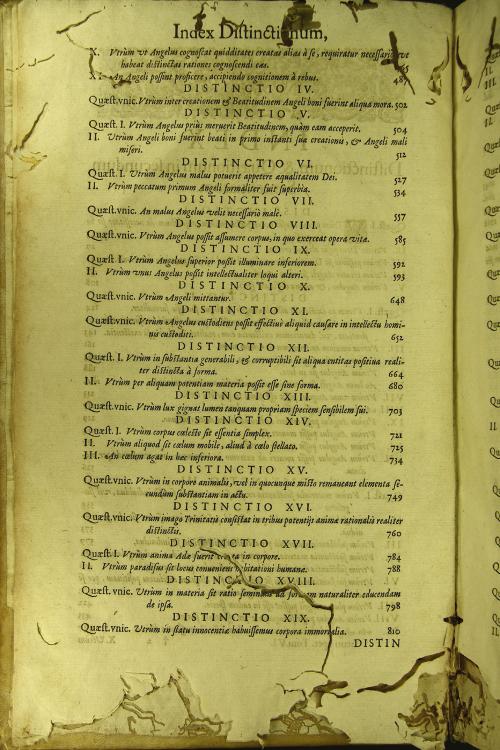 Index Distinctionum,
X. Vtrùm vt Angelus cognoscat quidditates creatas alias à se, requiratur necessariò vt
habeat distinctas rationes cognoscendi eas.
XI. An Angeli possint proficere, accipiendo cognitionem à rebus.
DISTINCTIO IV.
Quæst.vnic. Vtrùm inter creationem & Beatitudinem Angeli boni fuerint aliqua mora. 502
DISTINCTIO V.
Quæst. I. Vtrùm Angelus priùs meruerit Beatitudinem, quàm eam acceperit. 504
II. Vtrùm Angeli boni fuerint beati in primo instanti suæ creationis, & Angeli mali
miseri. 512
DISTINCTIO VI.
Quæst. I. Vtrùm Angelus malus potuerit appetere æqualitatem Dei. 527
II. Vtrùm peccatum primum Angeli formaliter fuit superbia. 534
DISTINCTIO VII.
Quæst.vnic. An malus Angelus velit necessariò malè. 557
DISTINCTIO VIII.
Quæst.vnic. Vtrùm Angelus possit assumere corpus, in quo exerceat opera vitæ. 585
DISTINCTIO IX.
Quæst. I. Vtrùm Angelus superior possit illuminare inferiorem. 592
II. Vtrùm vnus Angelus possit intellectualiter loqui alteri. 593
DISTINCTIO X.
Quæst.vnic. Vtrùm Angeli mittantur. 648
DISTINCTIO XI.
Quæst.vnic. Vtrùm Angelus custodiens possit effectiuè aliquid causare in intellectu homi-
nis custoditi. 652
DISTINCTIO XII.
Quæst. I. Vtrùm in substantia generabili, & corruptibili sit aliqua entitas positiua reali-
ter distincta à forma. 664
II. Vtrùm per aliquam potentiam materia possit esse sine forma. 680
DISTINCTIO XIII.
Quæst.vnic. Vtrùm lux gignat lumen tanquam propriam speciem sensibilem sui. 703
DISTINCTIO XIV.
Quæst. I. Vtrùm corpus cœleste sit essentia simplex. 721
II. Vtrùm aliquod sit cœlum mobile, aliud à cœlo stellato. 725
III. An cœlum agat in hæc inferiora. 734
DISTINCTIO XV.
Quæst.vnic. Vtrùm in corpore animalis, vel in quocunque misto remaneant elementa se-
cundùm substantiam in actu. 749
DISTINCTIO XVI.
Quæst.vnic. Vtrùm imago Trinitatis consistat in tribus potentijs animæ rationalis realiter
distinctis. 760
DISTINCTIO XVII.
Quæst. I. Vtrùm anima Adæ fuerit in corpore. 784
II. Vtrùm paradisus sit locus conueniens habitationi humanæ. 788
DISTINCTIO XVIII.
Quæst.vnic. Vtrùm in materia sit ratio seminalis ad formam naturaliter educendam
de ipsa. 798
DISTINCTIO XIX.
Quæst.vnic. Vtrùm in statu innocentiæ habuissemus corpora immortalia. 810
DISTIN